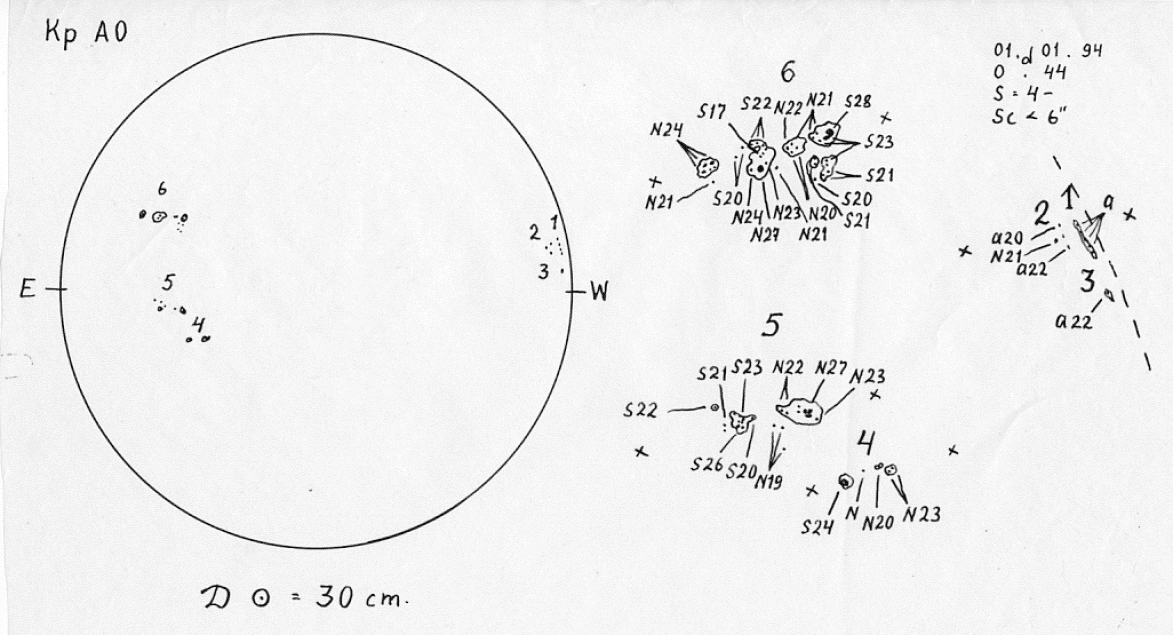 Kp AO
01.d 01. 94
0 . 44
S = 4 -
Sc < 6"
6
5
4
2
1
3
E
W
D ⊙ = 30 cm.
6
S17
S22
N22
N21
S28
N24
S23
S21
N21
S20
S20
N24
N23
N20
S21
N27
N21
5
S21
S23
N22
N27
N23
S22
S26
S20
N19
4
S24
N
N20
N23
2
1
a
a20
N21
a22
3
a22